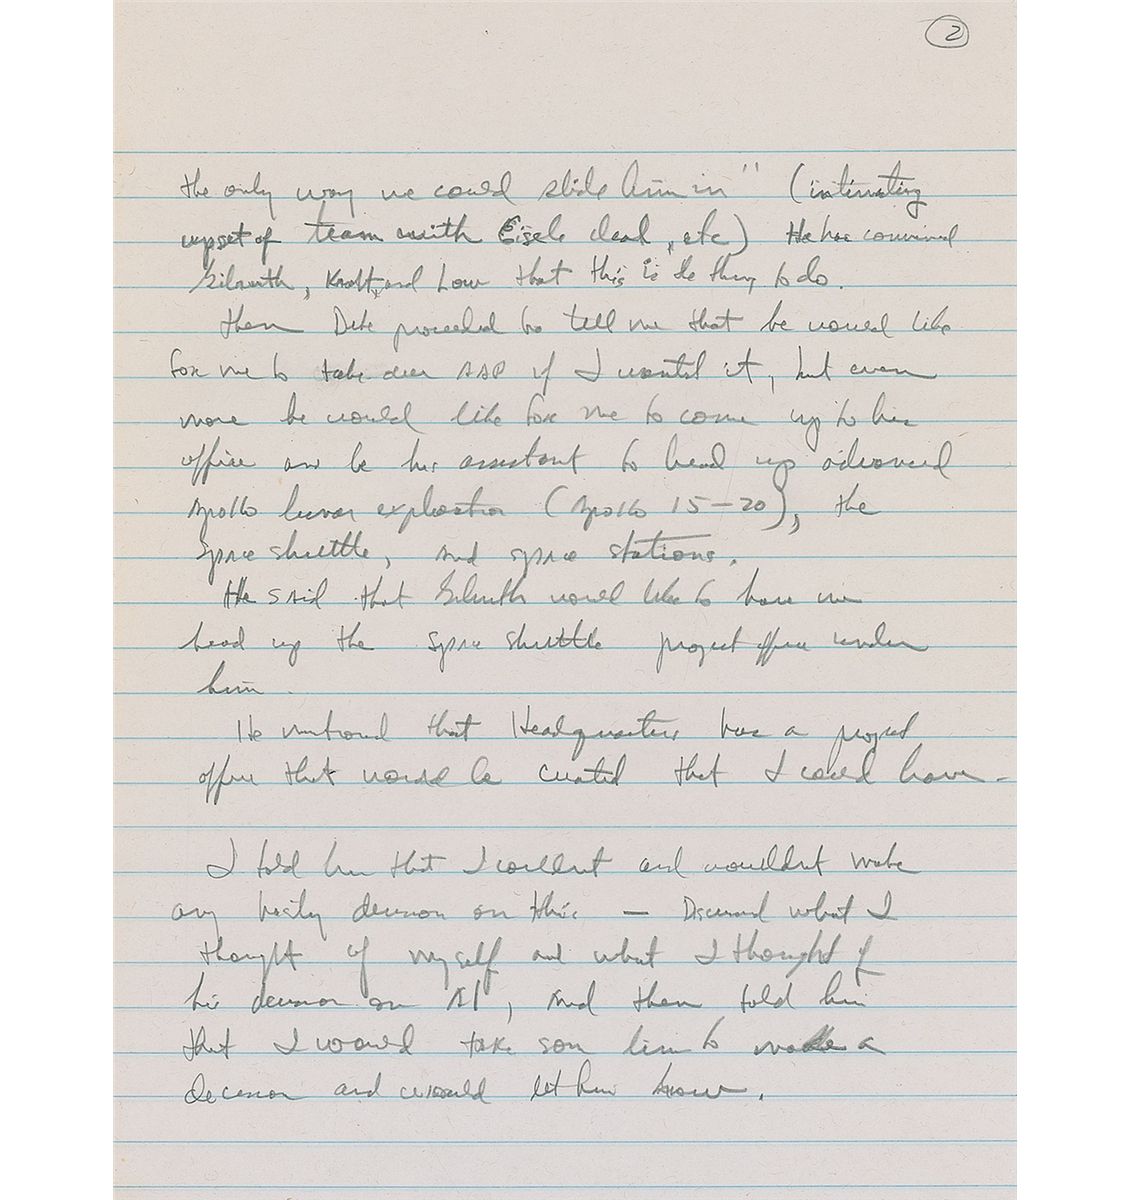 2
the only way we could slide him in" (intimating
upset of team with Eisele dead, etc) He has convinced
Gilruth, Kraft, and Low that this is the thing to do.
Then Deke proceeded to tell me that he would like
for me to take over AAP if I wanted it, but even
more he would like for me to come up to his
office and be his assistant to head up advanced
Apollo lunar exploration (Apollo 15-20), the
Space shuttle, and space stations.
He said that Gilruth would like to have me
head up the space shuttle project office under
him.
He mentioned that Headquarters has a project
office that would be created that I could have -
I told him that I couldnt and wouldnt make
any hasty decision on this — Discussed what I
thought of myself and what I thought of
his decision on Al, and then told him
that I would take some time to make a
decision and would let him know.